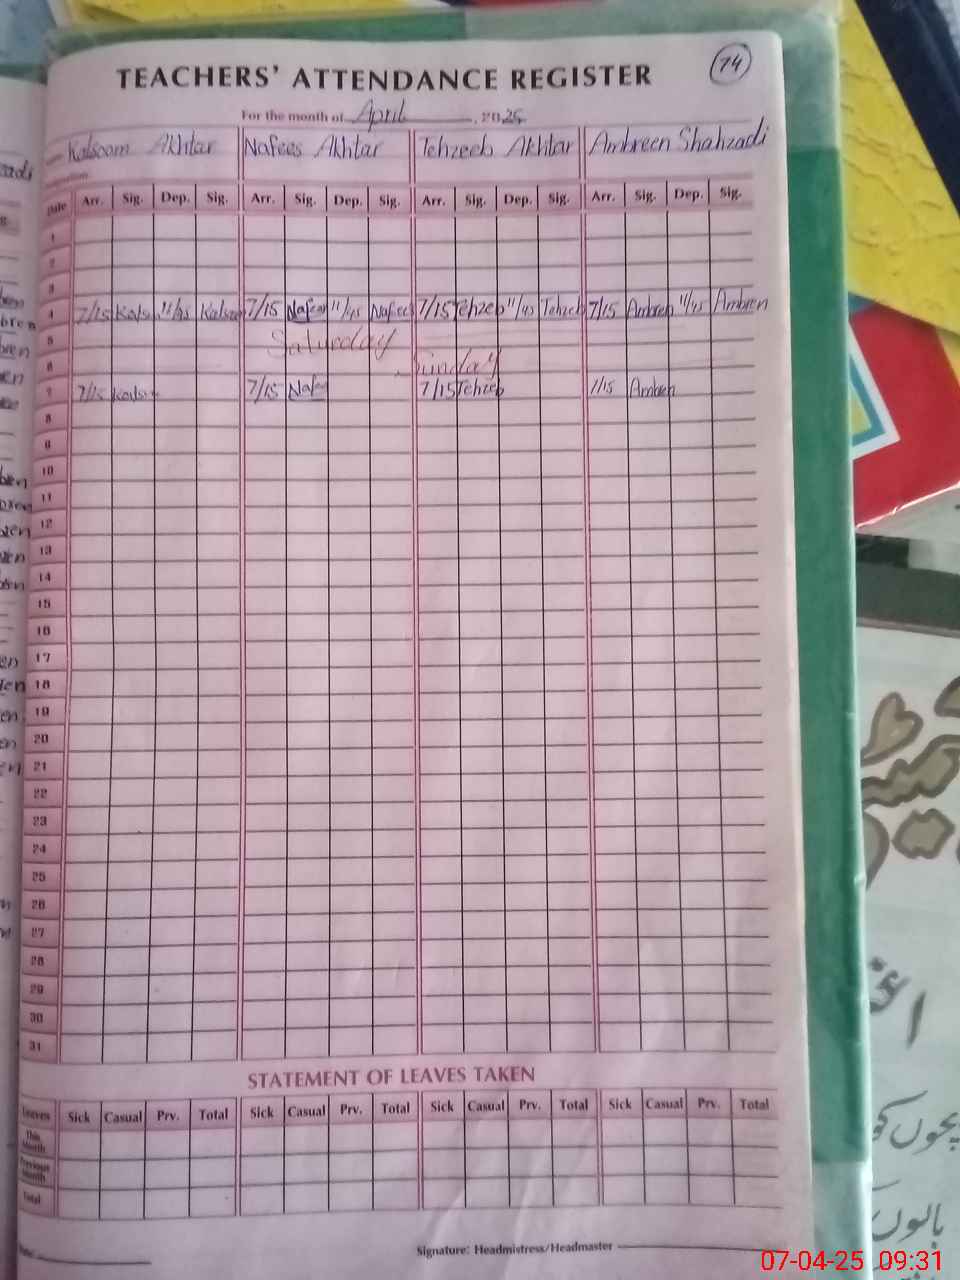 TEACHERS' ATTENDANCE REGISTER
74
For the month of April, 2025
Kalsoom Akhtar Nafees Akhtar Tehzeeb Akhtar Ambreen Shahzadi
Date Arr. Sig. Dep. Sig. Arr. Sig. Dep. Sig. Arr. Sig. Dep. Sig. Arr. Sig. Dep. Sig.
1
2
3
4 7/15 Kalso 11/45 Kalsoo 7/15 Nafees 11/45 Nafees 7/15 Tehzeb 11/45 Tehzeb 7/15 Ambren 11/45 Ambren
5 Saturday
6 Sunday
7 7/15 Kalso 7/15 Naf 7/15 Tehzeb 7/15 Ambren
8
9
10
11
12
13
14
15
16
17
18
19
20
21
22
23
24
25
26
27
28
29
30
31
STATEMENT OF LEAVES TAKEN
Leaves Sick Casual Prv. Total Sick Casual Prv. Total Sick Casual Prv. Total Sick Casual Prv. Total
This Month
Previous Month
Total
Signature: Headmistress/Headmaster
بچوں کو
07-04-25 09:31